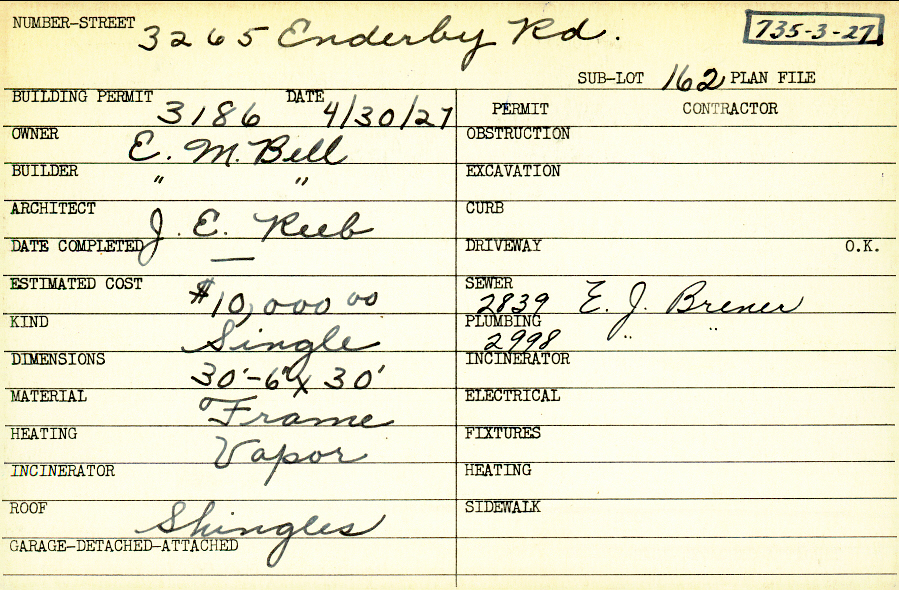 NUMBER-STREET 3265 Enderby Rd. 735-3-27
SUB-LOT 162 PLAN FILE
BUILDING PERMIT 3186 DATE 4/30/27 PERMIT CONTRACTOR
OWNER E. M. Bell OBSTRUCTION
BUILDER " " EXCAVATION
ARCHITECT J. E. Reeb CURB
DATE COMPLETED — DRIVEWAY O.K.
ESTIMATED COST $10,000 00 SEWER 2839 E. J. Brener
KIND Single PLUMBING 2998 " "
DIMENSIONS 30'-6" x 30' INCINERATOR
MATERIAL Frame ELECTRICAL
HEATING Vapor FIXTURES
INCINERATOR HEATING
ROOF Shingles SIDEWALK
GARAGE-DETACHED-ATTACHED